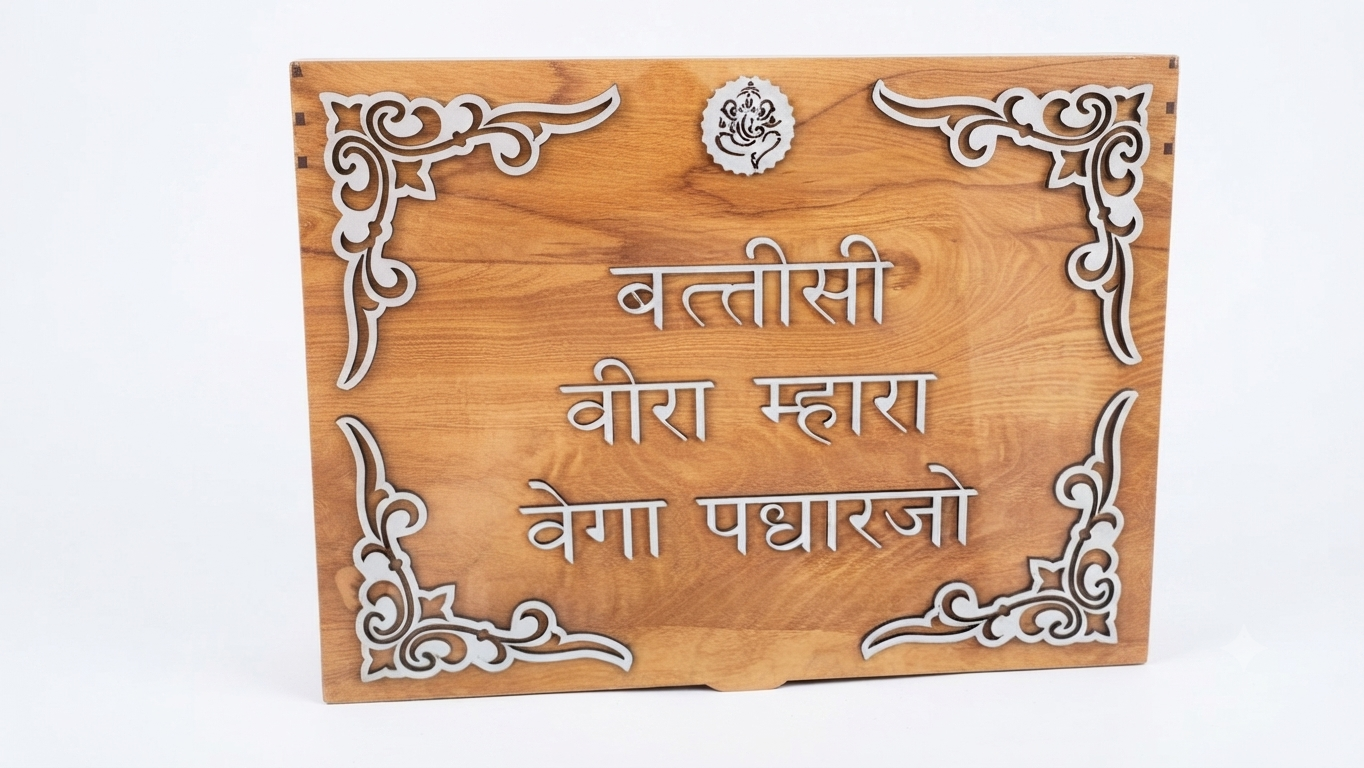 बत्तीसी
वीरा म्हारा
वेगा पधारजो